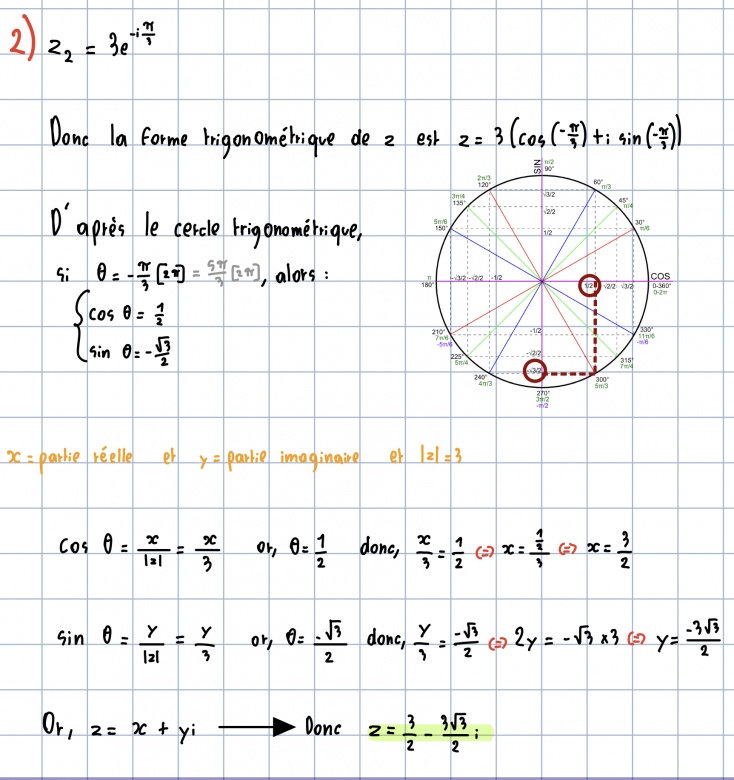 2) z₂ = 3e^(-i π/3)
Donc la forme trigonométrique de z est z = 3 (cos(-π/3) + i sin(-π/3))
D'après le cercle trigonométrique,
si θ = -π/3 [2π] = 5π/3 [2π], alors :
cos θ = 1/2
sin θ = -√3/2
SIN
π/2
90°
2π/3
120°
60°
π/3
3π/4
135°
45°
π/4
5π/6
150°
30°
π/6
√3/2
√2/2
1/2
π
180°
-√3/2 -√2/2 -1/2
1/2 √2/2 √3/2
COS
0-360°
0-2π
-1/2
-√2/2
-√3/2
210°
7π/6
-5π/6
330°
11π/6
-π/6
225°
5π/4
315°
7π/4
240°
4π/3
300°
5π/3
270°
3π/2
-π/2
x = partie réelle et y = partie imaginaire et |z| = 3
cos θ = x/|z| = x/3 or, θ = 1/2 donc, x/3 = 1/2 (=) x = (1/2)/3 (=) x = 3/2
sin θ = y/|z| = y/3 or, θ = -√3/2 donc, y/3 = -√3/2 (=) 2y = -√3 × 3 (=) y = -3√3/2
Or, z = x + yi ⟶ Donc z = 3/2 - 3√3/2 i